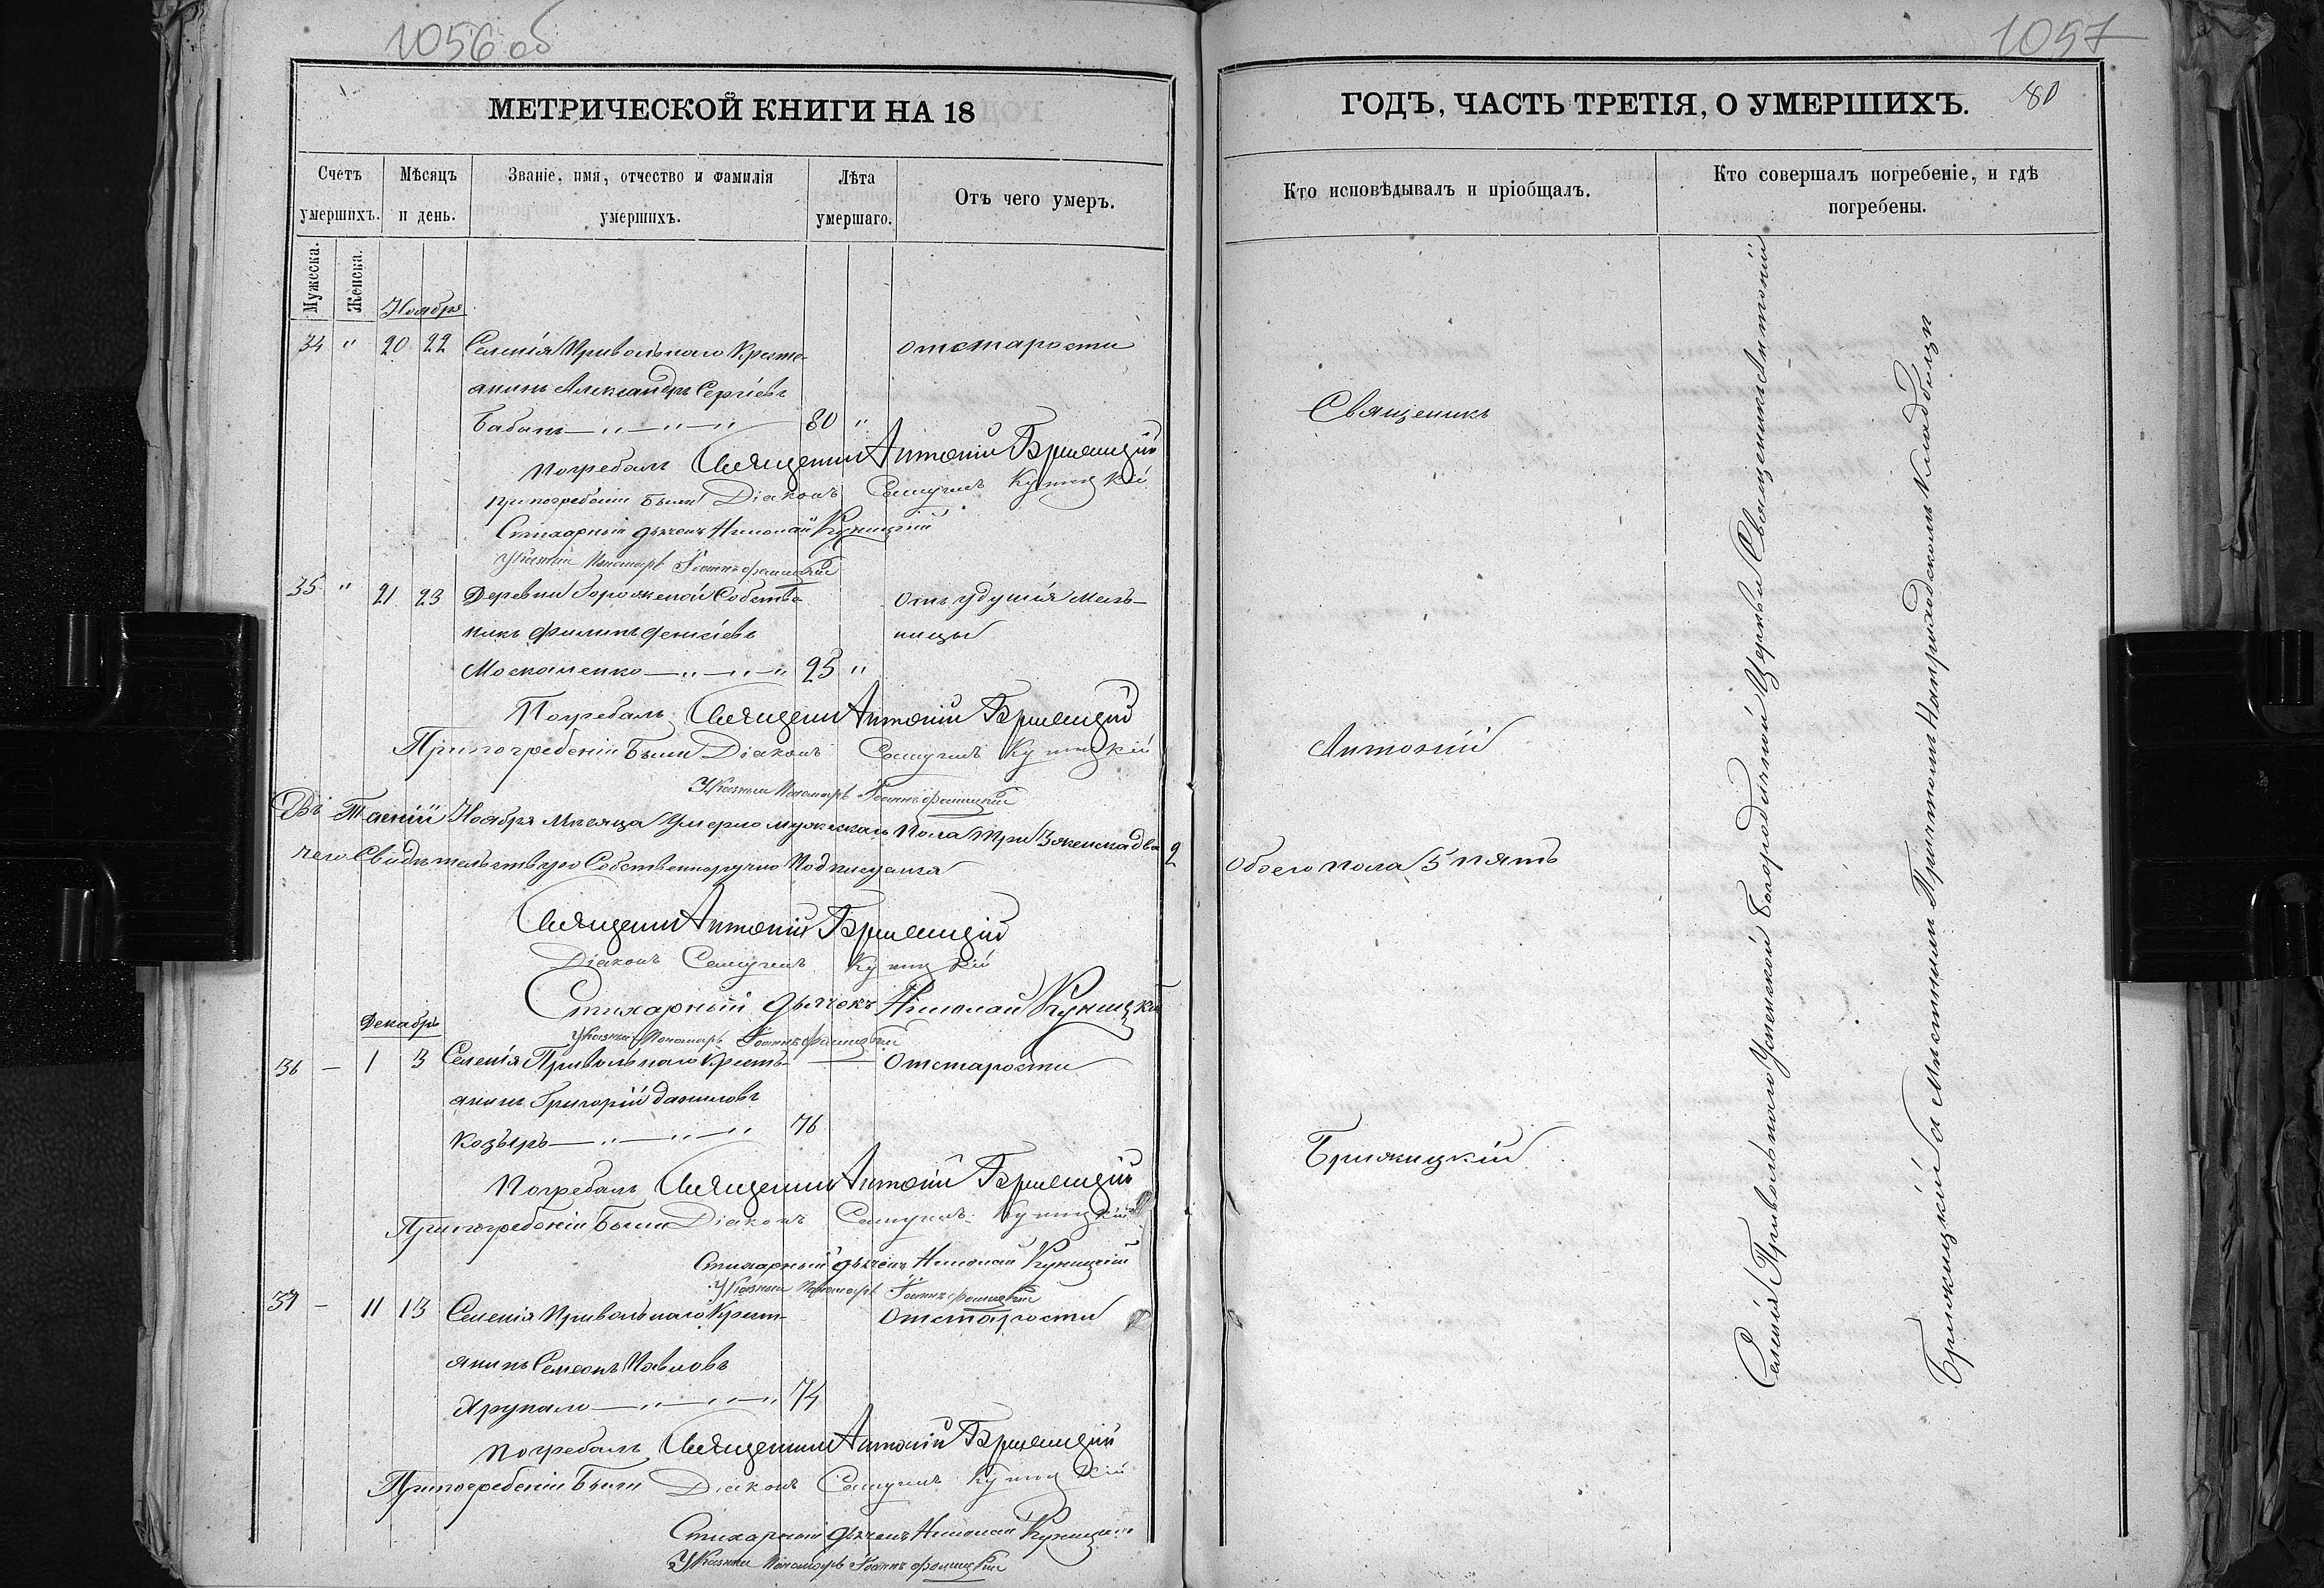 1056 об
МЕТРИЧЕСКОЙ КНИГИ НА 18
Счетъ умершихъ.
Мѣсяцъ и день.
Званіе, имя, отчество и фамилія умершихъ.
Лѣта умершаго.
Отъ чего умеръ.
Мужеска.
Женска.
Ноября
34 " 20 22 Селенія Привольнаго Кресть- отстарости
янинъ Александръ Сергіевъ
Бабинъ — " — " — " 80 "
Погребалъ Священникъ Антоній
припогребеніи были Діаконъ Самуилъ Куницкій
Стихарный дьячекъ Николай Куницкій
Указный Пономарь Іоаннъ
35 " 21 23 Деревни Собстве- Отъ удушія мель-
никъ Филипъ Денисіевъ ницы
Москаленко — " — " — " 25 "
Погребалъ Священникъ Антоній
Припогребеніи были Діаконъ Самуилъ Куницкій
Указный Пономарь Іоаннъ
Ноября Мѣсяца Умерло мужескаго Пола три 3 женска два 2
чего Свидѣтельствую Собственноручно Подписуемся
Священникъ Антоній
Діаконъ Самуилъ Куницкій
Стихарный дьячекъ Николай Куницкій
Указный Пономарь Іоаннъ
Декабрь
36 — 1 3 Селенія Привольнаго Кресть- — Отстарости
янинъ Григорій Даниловъ
Козырь — " — " — " 76
Погребалъ Священникъ Антоній
Припогребеніи были Діаконъ Самуилъ Куницкій
Стихарный дьячекъ Николай Куницкій
Указный Пономарь Іоаннъ
37 — 11 13 Селенія Привольнаго Крест- Отстарости
янинъ Семеонъ Павловъ
— " — " — " 74
Погребалъ Священникъ Антоній
Припогребеніи были Діаконъ Самуилъ Куницкій
Стихарный дьячекъ Николай Куницкій
Указный Пономарь Іоаннъ
1057
ГОДЪ, ЧАСТЬ ТРЕТІЯ, О УМЕРШИХЪ.
80
Кто исповѣдывалъ и пріобщалъ.
Кто совершалъ погребеніе, и гдѣ погребены.
Священикъ
Антоній
Обоего пола 5 пять
Брижицкій
Селенія Привольнаго Успенской Богородичной Церкви Священикъ Антоній
Брижицкій съ Мѣстнымъ Причтомъ Наприходскомъ Кладбищи